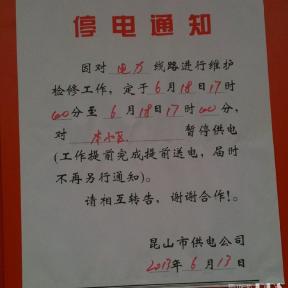 停电通知
因对 电力 线路进行维护
检修工作，定于6月18日17时
00分至6月18日17时00分，
对 本小区 暂停供电
(工作提前完成提前送电，届时
不再另行通知)。
请相互转告，谢谢合作!。
昆山市供电公司
2013年6月13日